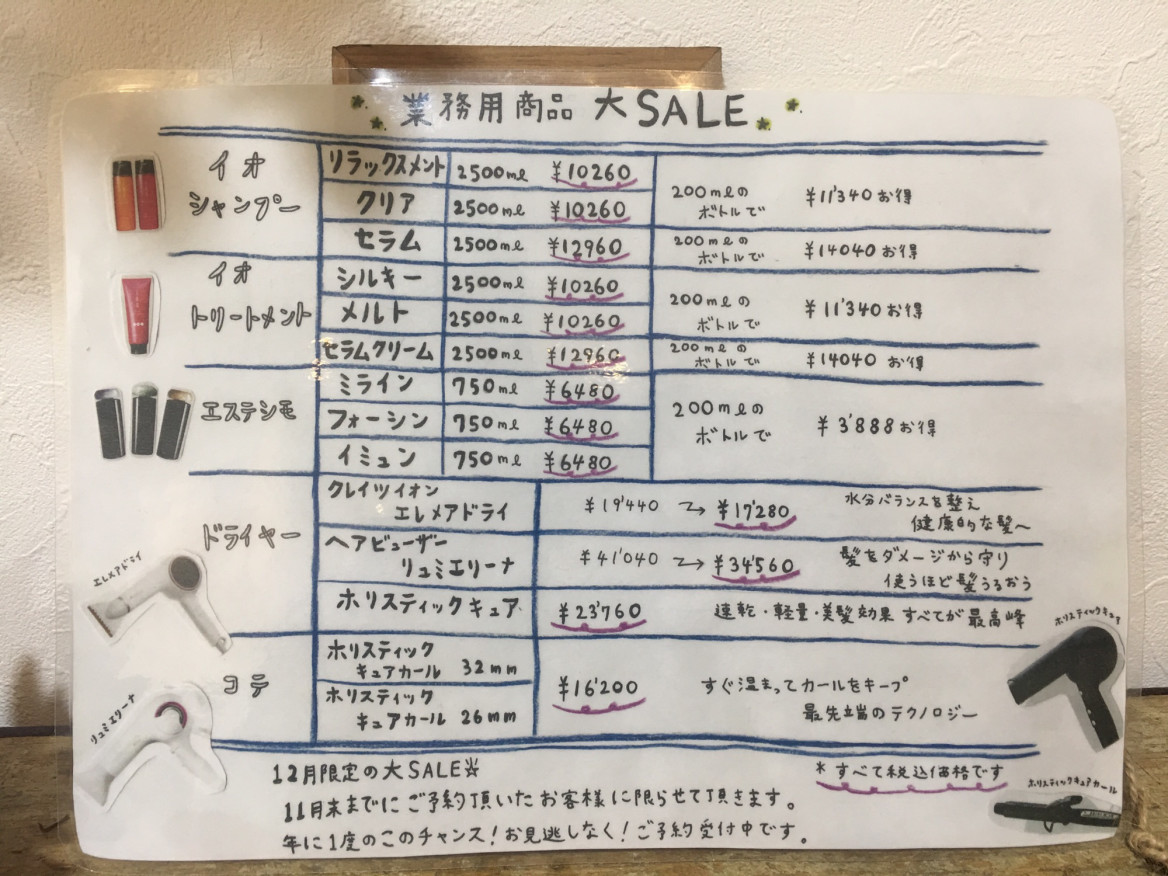 業務用商品 大SALE
イオ
シャンプー
リラックスメント 2500ml ¥10260
クリア 2500ml ¥10260
200mlの
ボトルで ¥11'340お得
セラム 2500ml ¥12960
200mlの
ボトルで ¥14040お得
イオ
トリートメント
シルキー 2500ml ¥10260
メルト 2500ml ¥10260
200mlの
ボトルで ¥11'340お得
セラムクリーム 2500ml ¥12960
200mlの
ボトルで ¥14040お得
エステシモ
ミライン 750ml ¥6480
フォーシン 750ml ¥6480
イミュン 750ml ¥6480
200mlの
ボトルで ¥3'888お得
ドライヤー
クレイツイオン
エレメアドライ
¥19'440 → ¥17'280
水分バランスを整え
健康的な髪へ
ヘアビューザー
リュミエリーナ
¥41'040 → ¥34'560
髪をダメージから守り
使うほど髪うるおう
ホリスティックキュア ¥23'760 速乾・軽量・美髪効果 すべてが最高峰
コテ
ホリスティック
キュアカール 32mm
ホリスティック
キュアカール 26mm
¥16'200
すぐ温まってカールをキープ
最先端のテクノロジー
エレメアドライ
リュミエリーナ
ホリスティックキュア
ホリスティックキュアカール
*すべて税込価格です
12月限定の大SALE☆
11月末までにご予約頂いたお客様に限らせて頂きます。
年に1度のこのチャンス!お見逃しなく!ご予約受付中です。